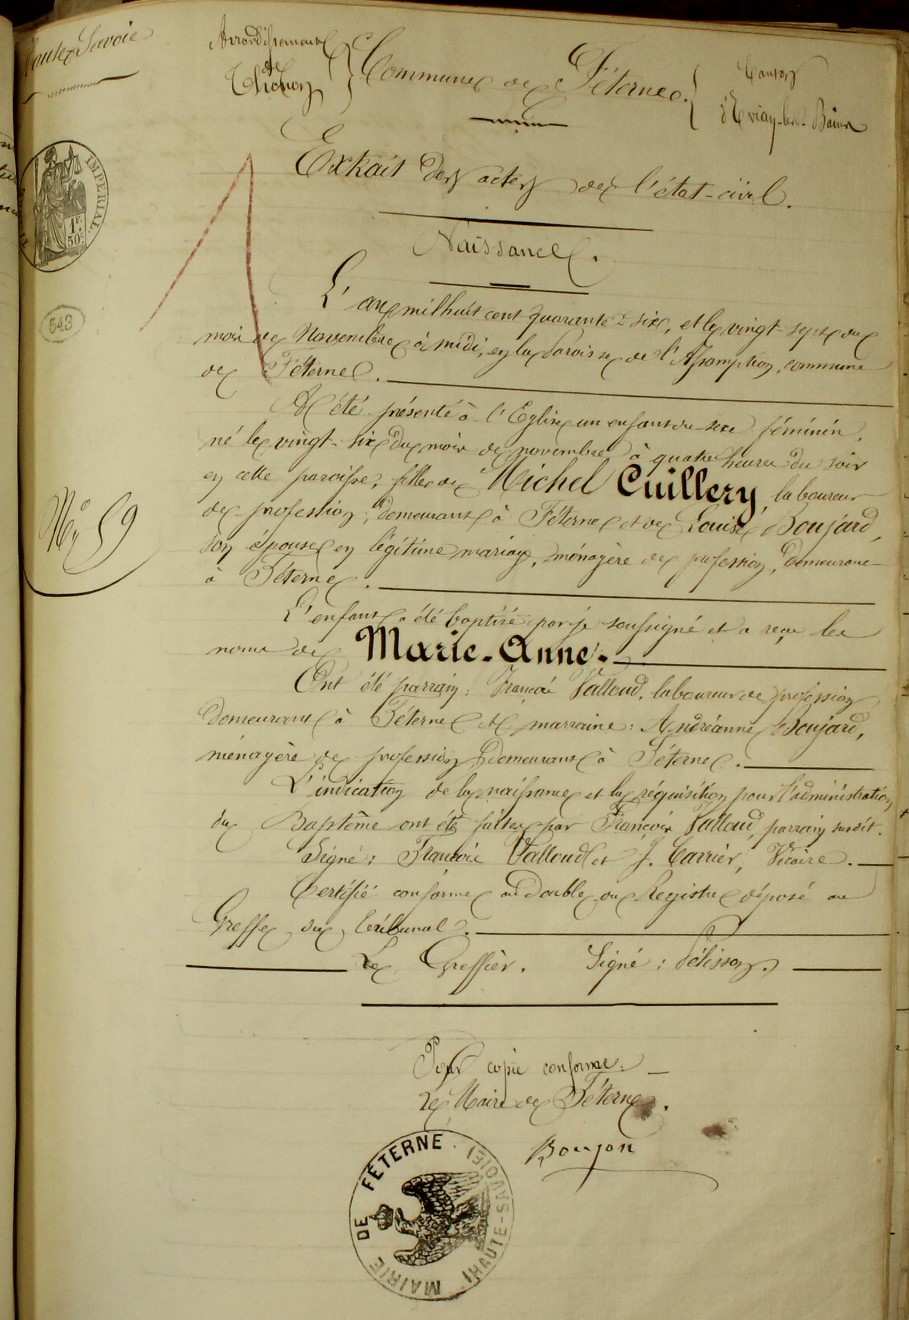 Haute Savoie
Arrondissement
de
Thonon
Commune de Féterne.
Canton
d'Evian-les-Bains
Extrait des actes de l'état-civil.
IMPERIAL.
1F
50c
Naissance.
543
L'an mil huit cent quarante-six, et le vingt-sept du
mois de Novembre à midi, en la Paroisse de l'Assomption, commune
de Féterne.
A été présenté à l'Eglise un enfant du sexe féminin,
né le vingt-six du mois de novembre à quatre heures du soir
en cette paroisse, fille de Michel Cuillery, laboureur
de profession, demeurant à Féterne et de Louise Boujard,
son épouse en légitime mariage, ménagère de profession, demeurant
à Féterne.
No 59
L'enfant a été baptisé par je soussigné et a reçu les
noms de Marie-Anne.
Ont été parrain: François Valloud, laboureur de profession
demeurant à Féterne et marraine: Andréanne Boujard,
ménagère de profession demeurant à Féterne.
L'indication de la naissance et la réquisition pour l'administration
du Baptême ont été faites par François Valloud, parrain susdit.
Signé: François Valloud et J. Carrier, Vicaire.
Certifié conforme au Double du Registre déposé au
Greffe du tribunal.
Le Greffier. Signé: Pélisson.
Pour copie conforme:
Le Maire de Féterne.
Boujon
MAIRIE DE FÉTERNE. (HAUTE-SAVOIE)